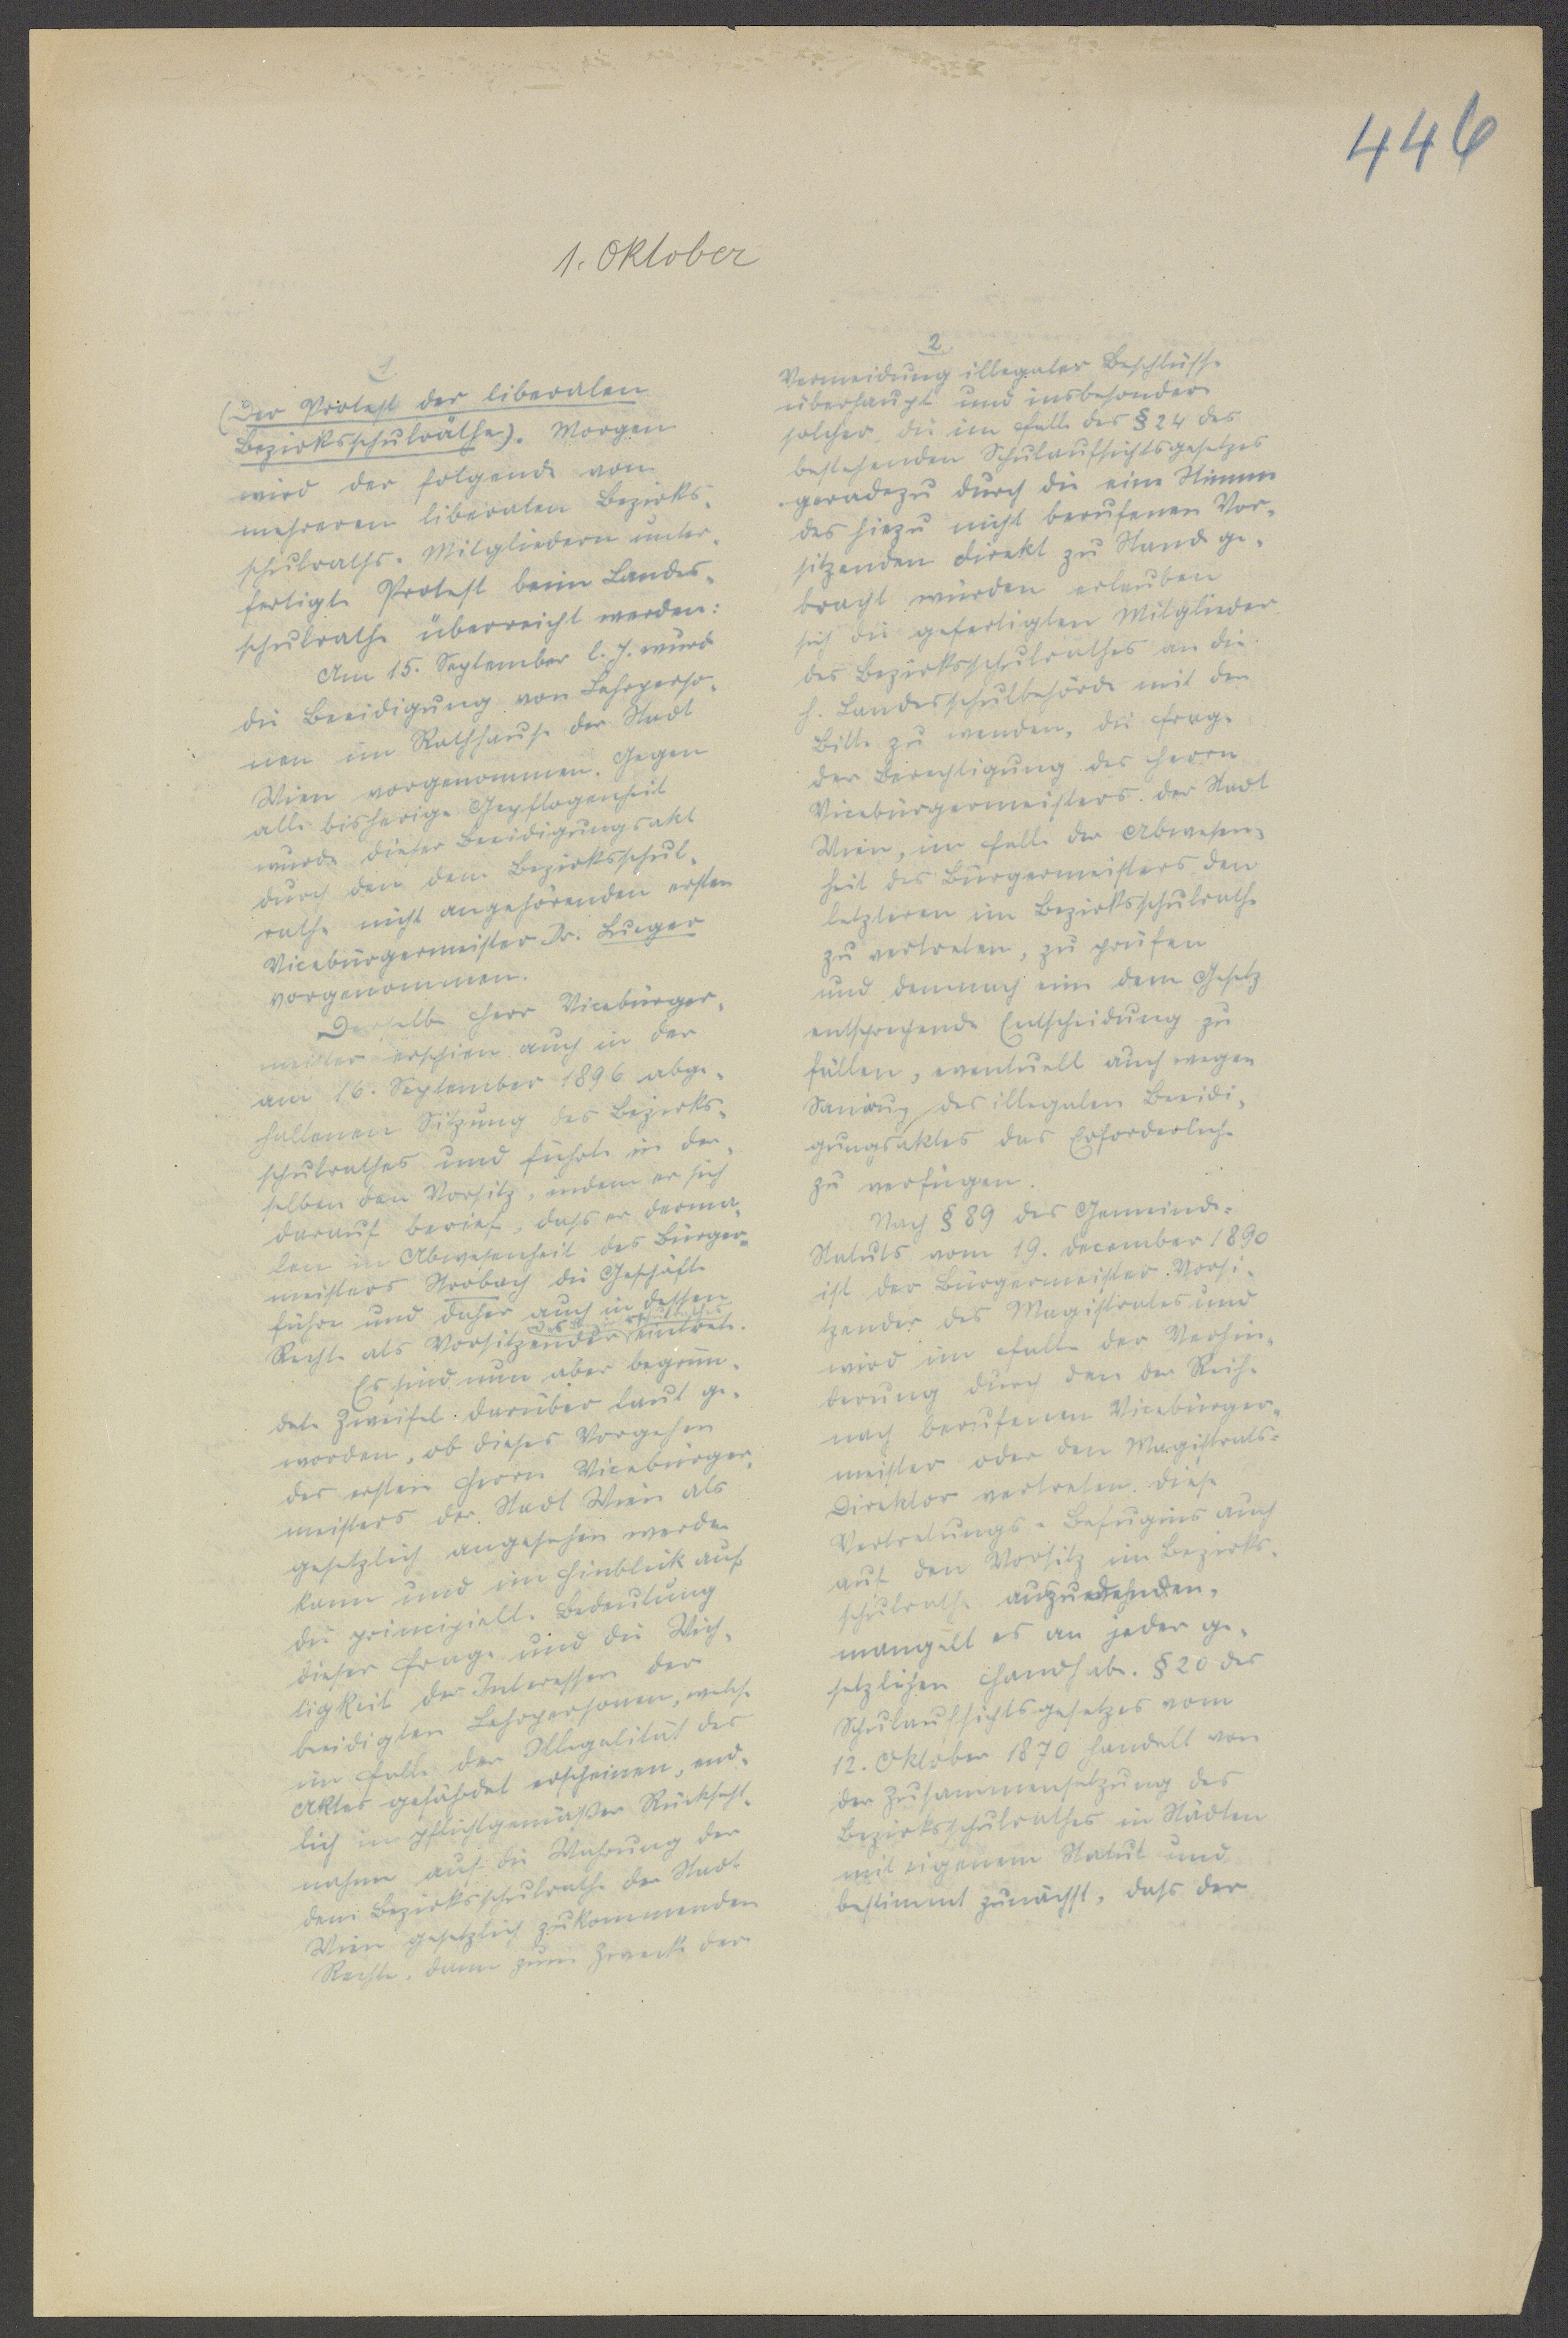 446
1. Oktober
1
(Der Protest der liberalen
Bezirksschulräthe). Morgen
wird der folgende von
mehreren liberalen Bezirks-
schulraths-Mitgliedern unter-
fertigte Protest beim Landes-
schulrathe überreicht werden:
Am 15. September l. J. wurde
die Beeidigung von Lehrperso-
nen im Rathhause der Stadt
Wien vorgenommen. Gegen
alle bisherige Gepflogenheit
wurde dieser Beeidigungsakt
durch den dem Bezirksschul-
rathe nicht angehörenden ersten
Vicebürgermeister Dr. Lueger
vorgenommen.
Derselbe Herr Vicebürger-
meister erschien auch in der
am 16. September 1896 abge-
haltenen Sitzung des Bezirks-
schulrathes und führte in der-
selben den Vorsitz, indem er sich
darauf berief, dass er derma-
len in Abwesenheit des Bürger-
meisters Strobach die Geschäfte
führe und daher auch in dessen
Recht als Vorsitzender des Bezirksschulrathes eintrete.
Es sind nun aber begrün-
dete Zweifel darüber laut ge-
worden, ob dieses Vorgehen
des ersten Herrn Vicebürger-
meisters der Stadt Wien als
gesetzlich angesehen werden
kann und im Hinblick auf
die principielle Bedeutung
dieser Frage und die Wich-
tigkeit der Interessen der
beeidigten Lehrpersonen, welche
im Falle der Illegalität des
Aktes gefährdet erscheinen, end-
lich in pflichtgemäßer Rücksicht-
nahme auf die Wahrung der
dem Bezirksschulrathe der Stadt
Wien gesetzlich zukommenden
Rechte, dann zum Zwecke der
2
Vermeidung illegaler Beschlüsse
überhaupt und insbesondere
solcher, die im Falle des § 24 des
bestehenden Schulaufsichtsgesetzes
geradezu durch die eine Stimme
des hiezu nicht berufenen Vor-
sitzenden direkt zu Stande ge-
bracht würden erlauben
sich die gefertigten Mitglieder
des Bezirksschulrathes an die
h. Landesschulbehörde mit der
Bitte zu wenden, die Frage
der Berechtigung des Herrn
Vicebürgermeisters der Stadt
Wien, im Falle der Abwesen-
heit des Bürgermeisters den
letzteren im Bezirksschulrathe
zu vertreten, zu prüfen
und demnach eine dem Gesetz
entsprechende Entscheidung zu
fällen, eventuell auch wegen
Sanirung des illegalen Beeidi-
gungsaktes das Erforderliche
zu verfügen.
Nach § 89 des Gemeinde-
Statuts vom 19. December 1890
ist der Bürgermeister Vorsi-
tzender des Magistrates und
wird im Falle der Verhin-
derung durch den der Reihe
nach berufenen Vicebürger-
meister oder den Magistrats-
Direktor vertreten. Diese
Vertretungs-Befugnis auch
auf den Vorsitz im Bezirks-
schulrathe auszudehnen,
mangelt es an jeder ge-
setzlichen Handhabe. § 20 des
Schulaufsichtsgesetzes vom
12. Oktober 1870 handelt von
der Zusammensetzung des
Bezirksschulrathes in Städten
mit eigenem Statut und
bestimmt zunächst, dass der